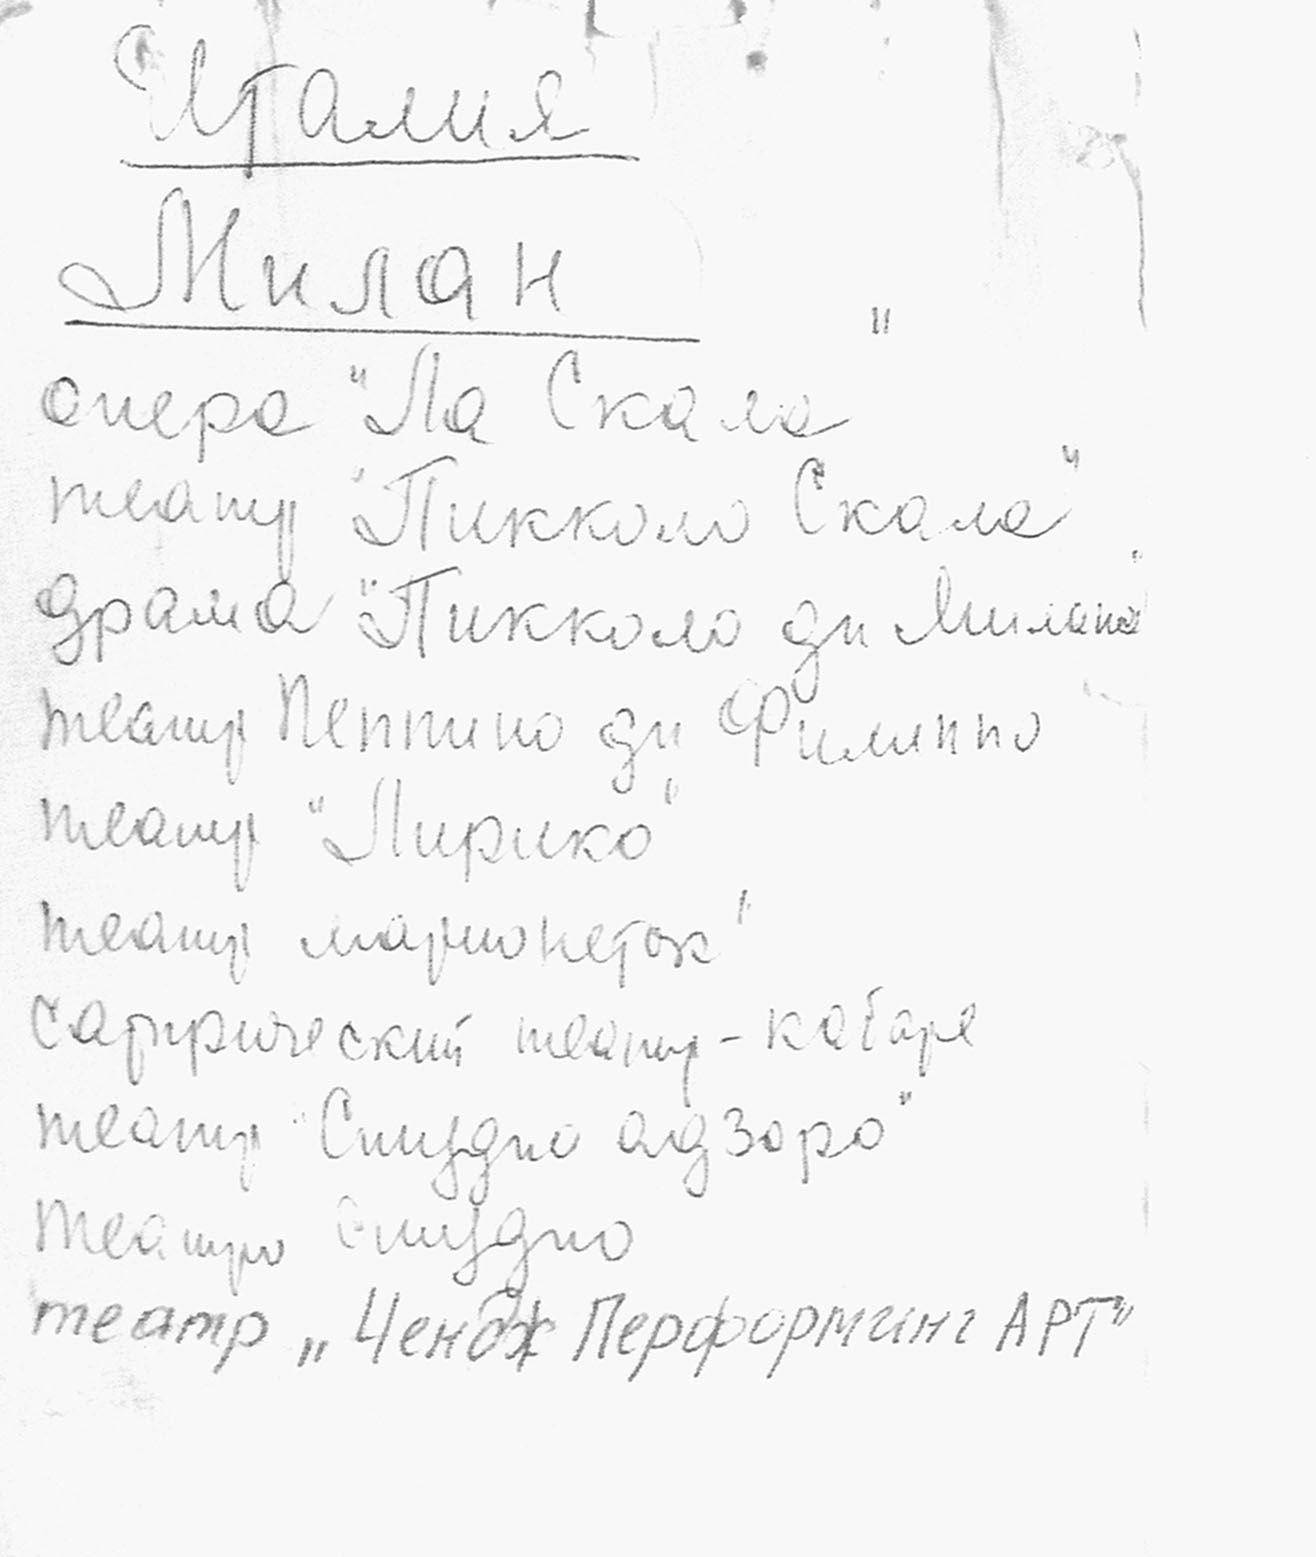 Италия
Милан
опера "Ла Скала"
театр "Пикколо Скала"
драма "Пикколо ди Милана"
театр Пеппино ди Филиппо
театр "Лирико"
театр марионеток"
Сатирический театр-кабаре
театр "Студио адзоро"
Театро Студио
театр „Чендж Перформинг АРТ"